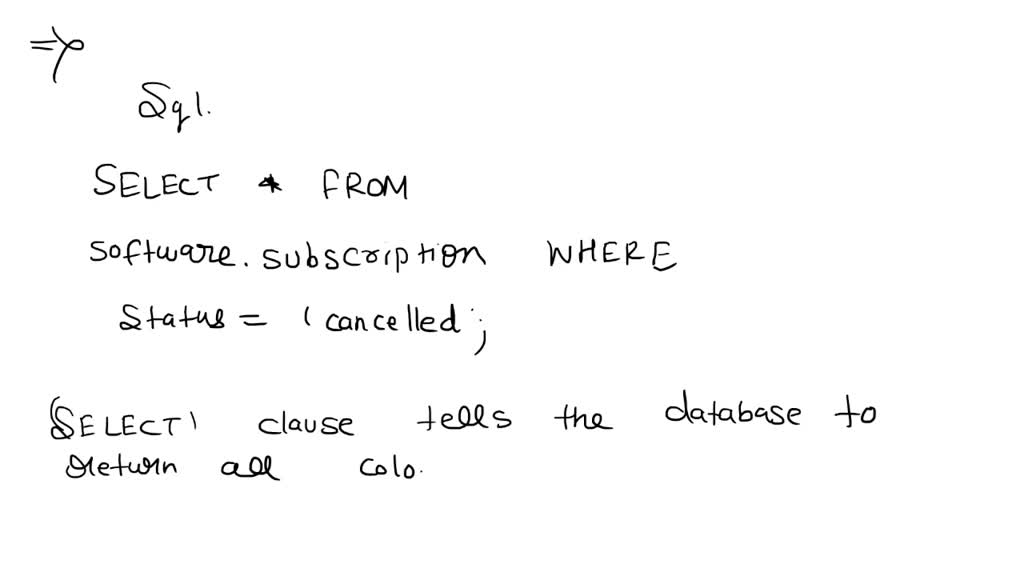 =>
Sql.
SELECT * FROM
software.subscription WHERE
Status = 'cancelled;
'SELECT' clause tells the database to
return all colo.